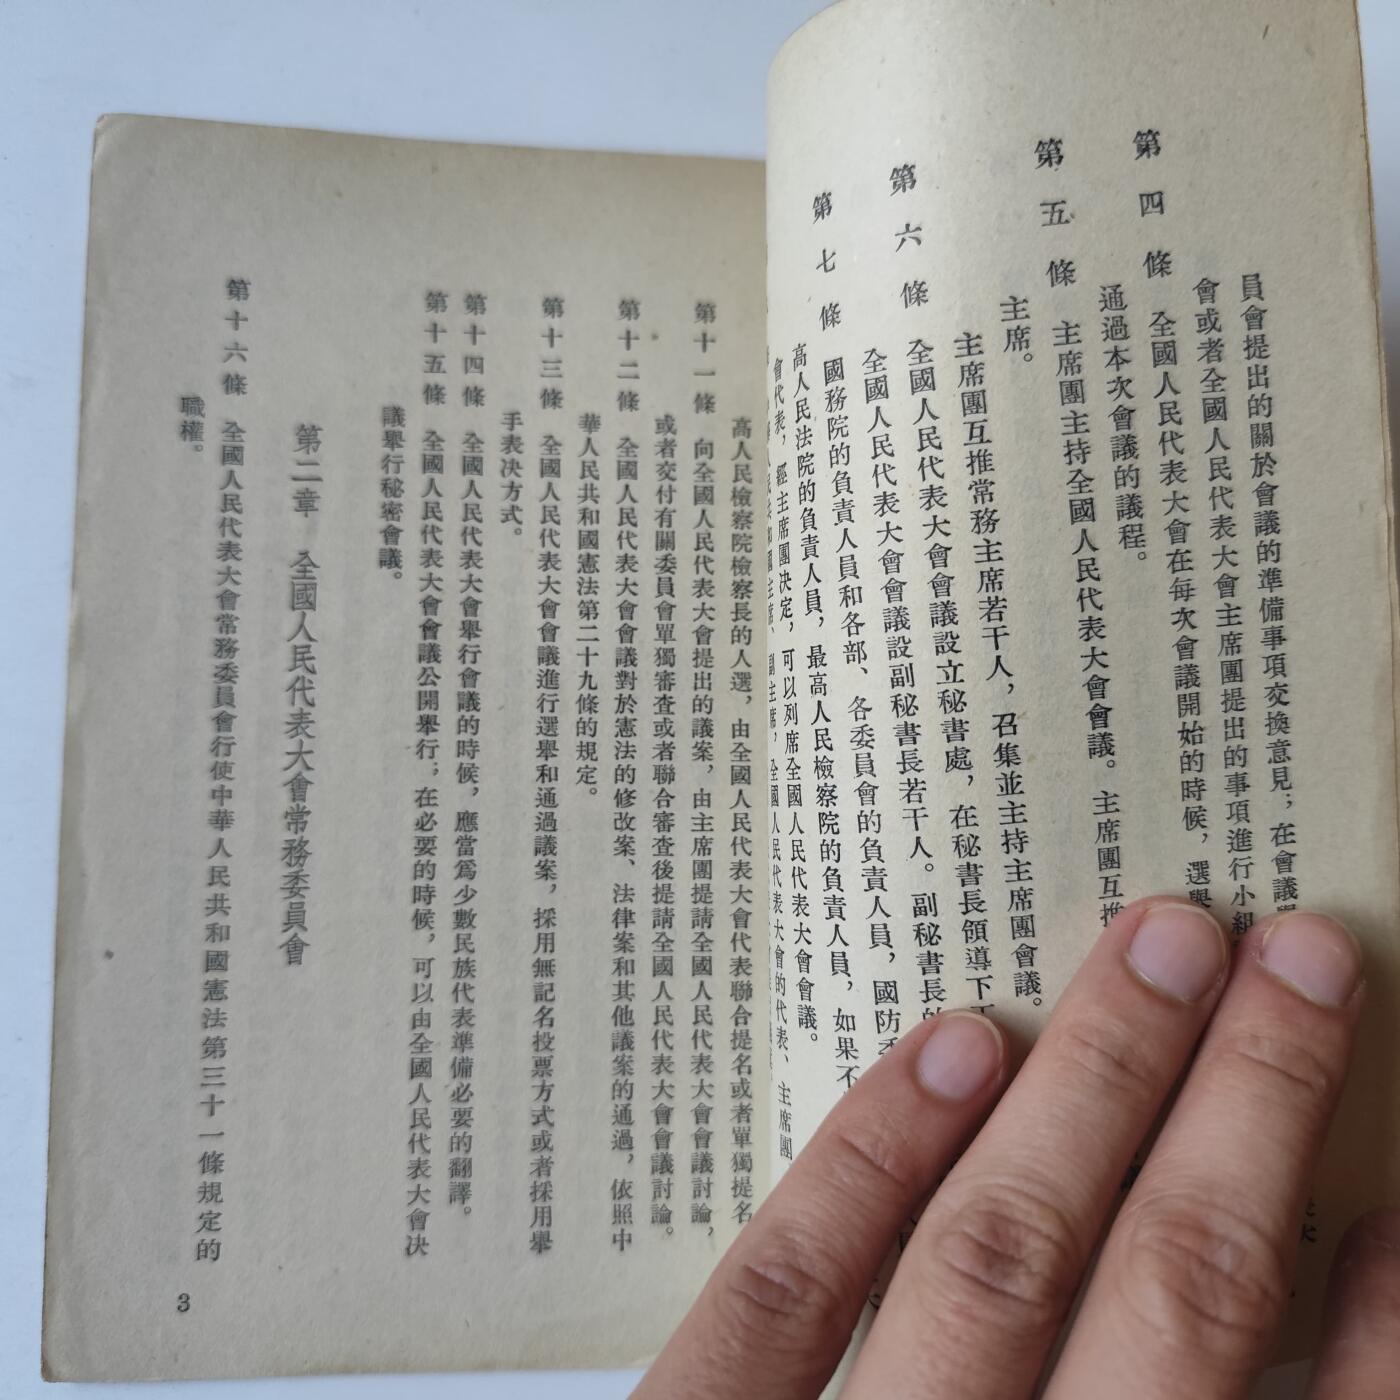 員會提出的關於會議的準備事項交換意見；在會議
會或者全國人民代表大會主席團提出的事項進行小組
第四條　全國人民代表大會在每次會議開始的時候，選舉
通過本次會議的議程。
第五條　主席團主持全國人民代表大會會議。主席團互推
主席。
主席團互推常務主席若干人，召集並主持主席團會議。
第六條　全國人民代表大會會議設立秘書處，在秘書長領導下
全國人民代表大會會議設副秘書長若干人。副秘書長的
第七條　國務院的負責人員和各部、各委員會的負責人員，國防
高人民法院的負責人員，最高人民檢察院的負責人員，如果不
會代表，經主席團決定，可以列席全國人民代表大會會議。
主席、副主席，全國人民代表大會的代表、主席團
高人民檢察院檢察長的人選，由全國人民代表大會代表聯合提名或者單獨提名
第十一條　向全國人民代表大會提出的議案，由主席團提請全國人民代表大會會議討論，
或者交付有關委員會單獨審查或者聯合審查後提請全國人民代表大會會議討論。
第十二條　全國人民代表大會會議對於憲法的修改案、法律案和其他議案的通過，依照中
華人民共和國憲法第二十九條的規定。
第十三條　全國人民代表大會會議進行選舉和通過議案，採用無記名投票方式或者採用舉
手表決方式。
第十四條　全國人民代表大會舉行會議的時候，應當爲少數民族代表準備必要的翻譯。
第十五條　全國人民代表大會會議公開舉行；在必要的時候，可以由全國人民代表大會決
議舉行秘密會議。
第二章　全國人民代表大會常務委員會
第十六條　全國人民代表大會常務委員會行使中華人民共和國憲法第三十一條規定的
職權。
3